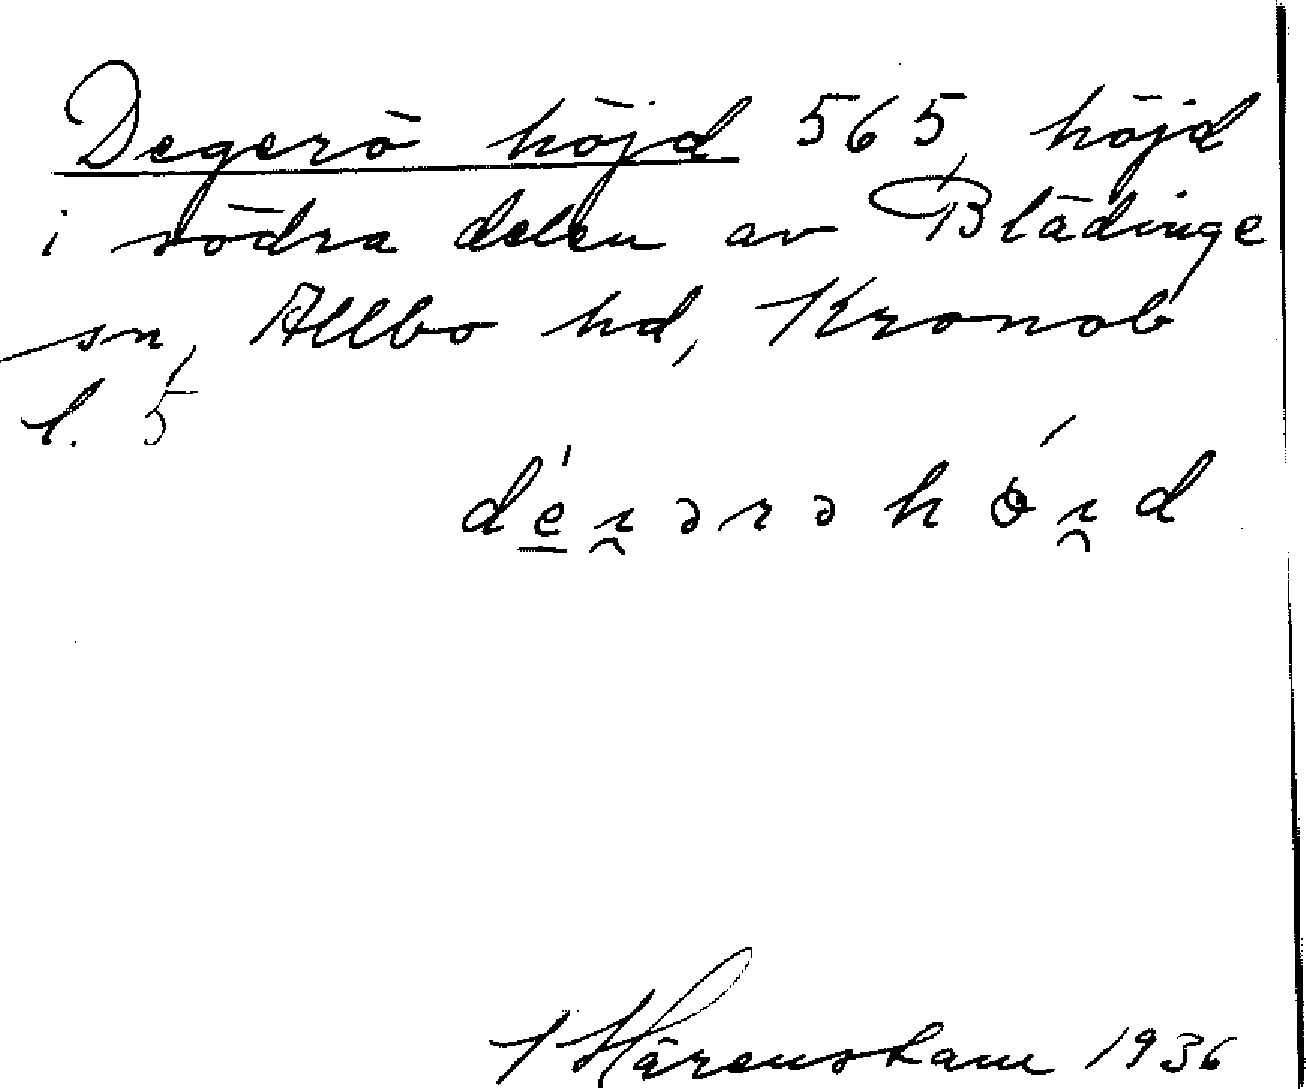 Degerö höjd 565, höjd
i södra delen av Blädinge
sn, Allbo hd, Kronob
l. 5
dé̱ı̯ərəhö́ı̯d
Härenstam 1936